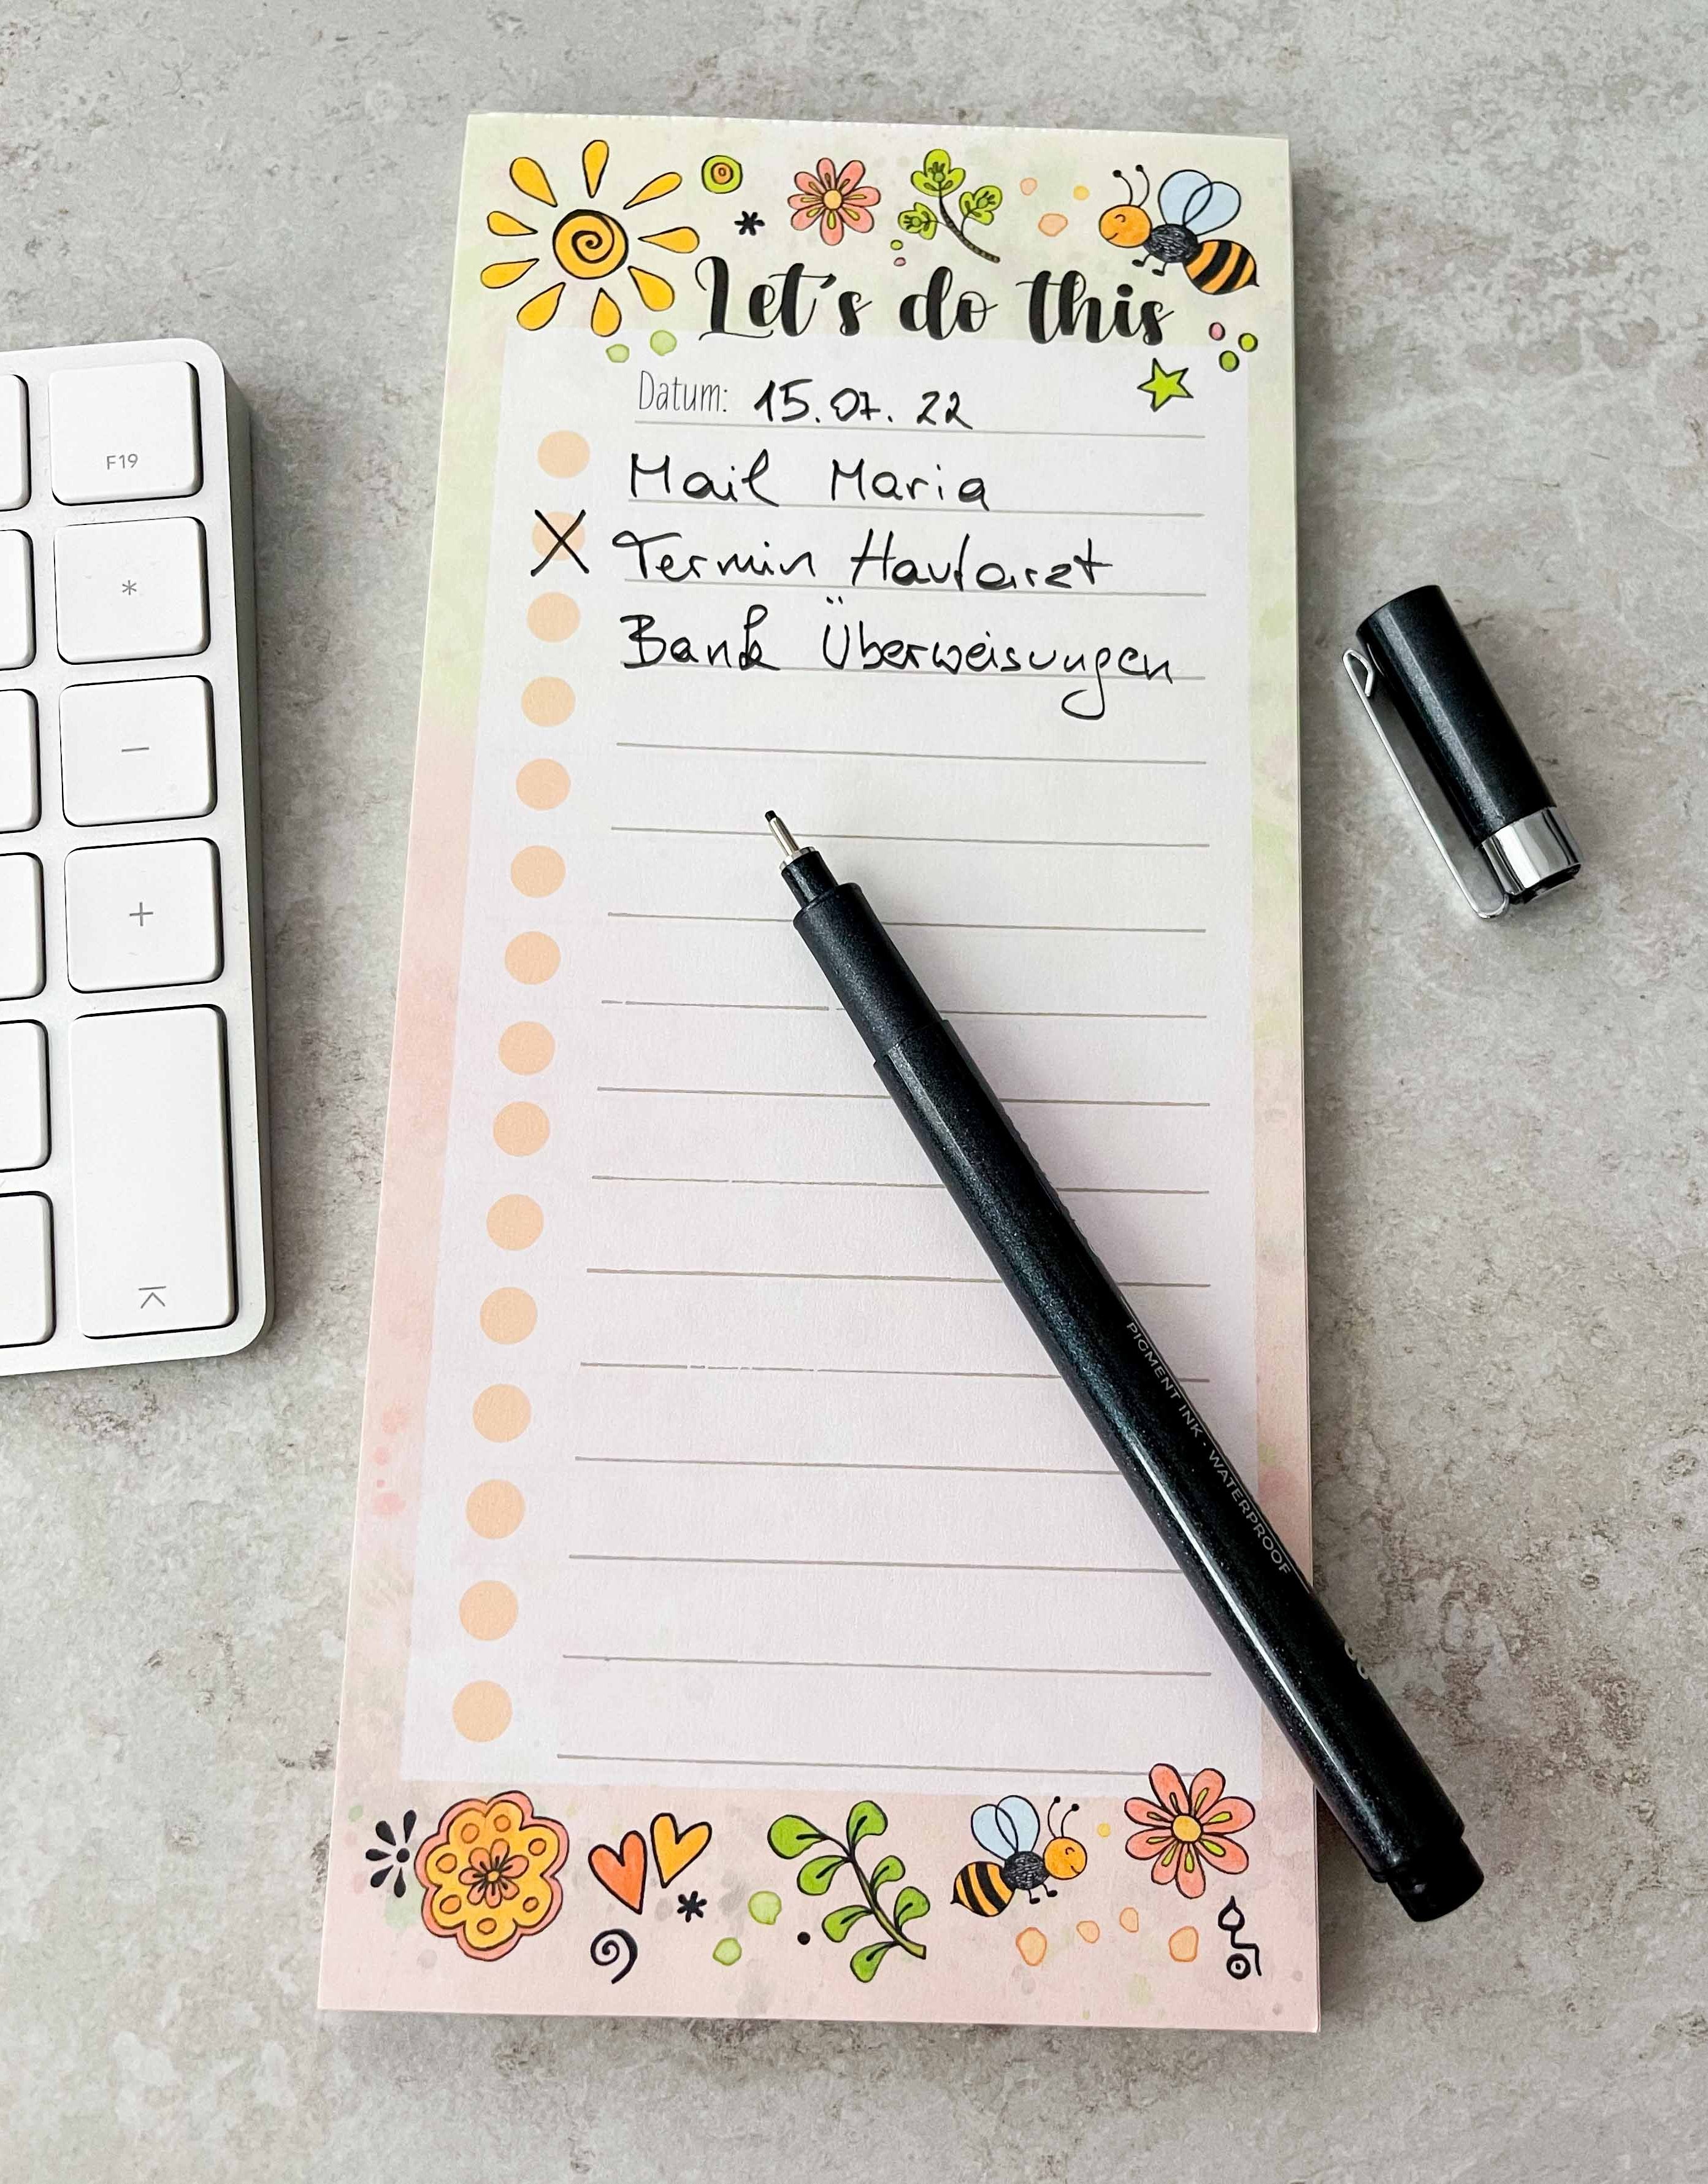 Let's do this
Datum: 15.07.22
Mail Maria
X Termin Hautarzt
Bank Überweisungen
F19
*
−
+
PIGMENT INK · WATERPROOF